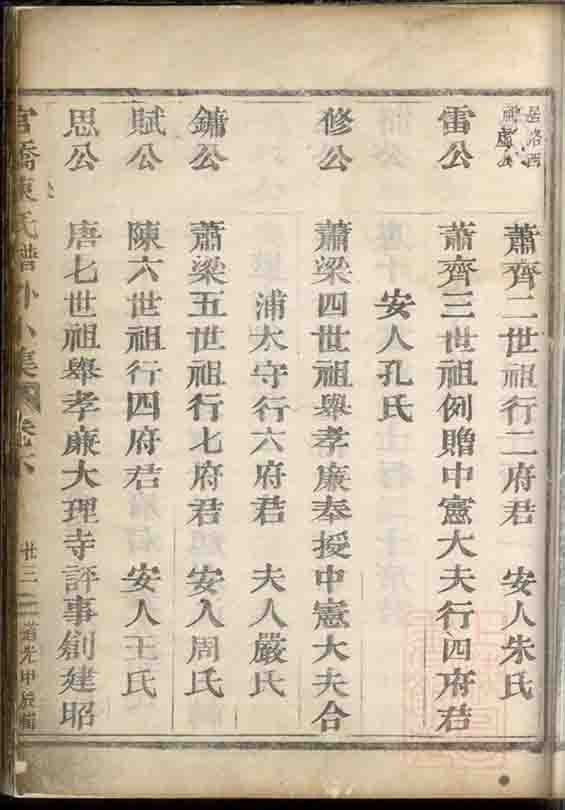 蕭齊二世祖行二府君 安人朱氏
雷公 蕭齊三世祖例贈中憲大夫行四府君
安人孔氏
修公 蕭梁四世祖舉孝廉奉授中憲大夫合
浦太守行六府君 夫人嚴氏
鏞公 蕭梁五世祖行七府君 安人周氏
賦公 陳六世祖行四府君 安人王氏
思公 唐七世祖舉孝廉大理寺評事創建昭
官橋 氏譜外小集 卷六 廿三 道光甲辰輯